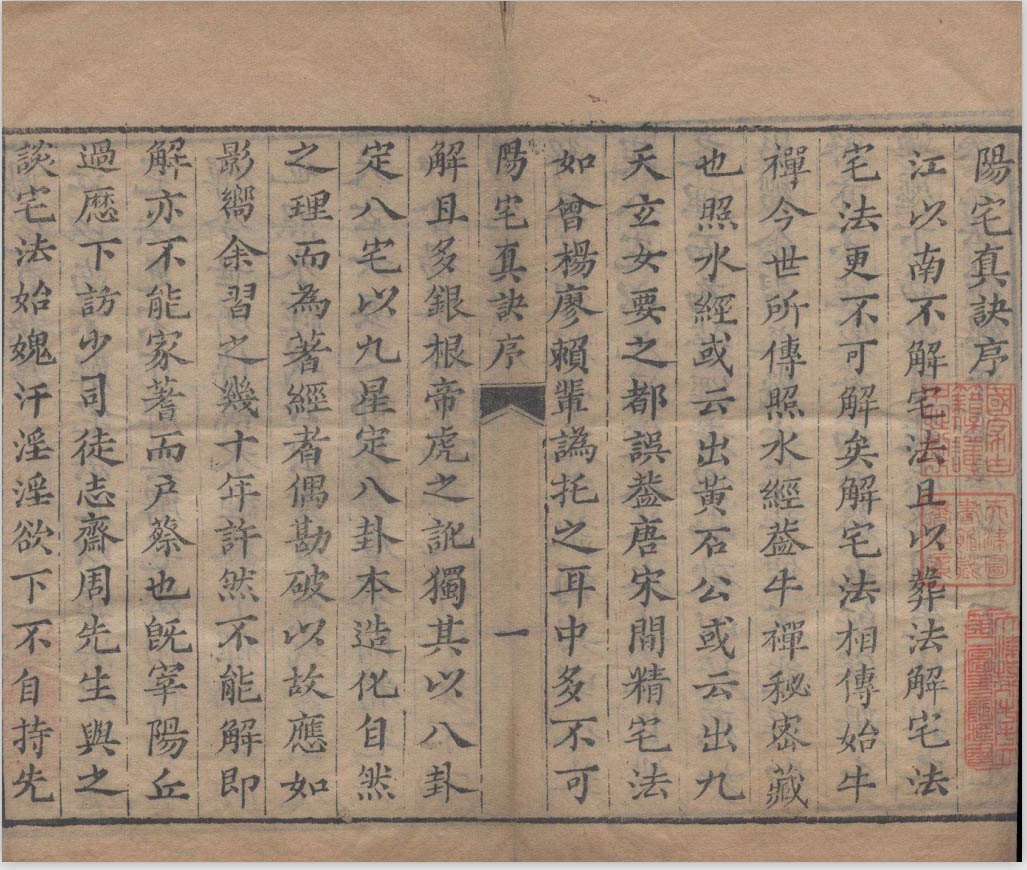 陽宅真訣序
江以南不解宅法且以葬法解宅法
宅法更不可解矣解宅法相傳始牛
禪今世所傳照水經葢牛禪秘密藏
也照水經或云出黃石公或云出九
天玄女要之都誤葢唐宋間精宅法
如曾楊廖賴輩譌托之耳中多不可
陽宅真訣序
一
解且多銀根帝虎之訛獨其以八卦
定八宅以九星定八卦本造化自然
之理而為著經者偶勘破以故應如
影嚮余習之幾十年許然不能解即
解亦不能家蓍而戶蔡也旣宰陽丘
過歷下訪少司徒志齋周先生與之
談宅法始媿汗淫淫欲下不自持先